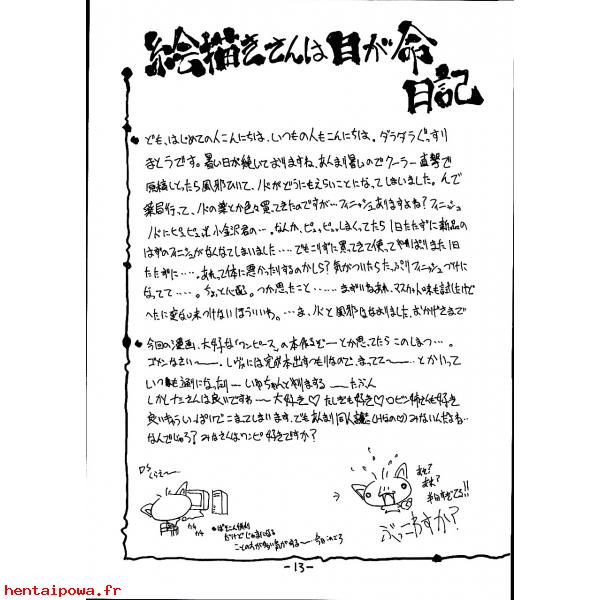 絵描きさんは目が命
日記
ども、はじめての人こんにちは、いつもの人もこんにちは。ダラダラぐっすり
さとうです。暑い日が続しておりますね、あんまり暑いのでクーラー直撃で
原稿しとったら風邪ひいて、ノドがどうにもえらいことになってしまいました。んで
薬局行って、ノドの薬とか色々買ってきたのですが…フィニッシュありますよね?フィニッシュ
ノドにピュピュッと小金沢君の…。なんか、ピュッピュッしまくってたら1日たたずに新品の
はずのフィニッシュがなくなてしまいました……でもこりずに買ってきて使ってやればりまた1日
たたずに……。あれって体に悪かったりするのかしら?気がついたらたっぷりフィニッシュづけに
なってて……。ちょっと心配。つか思ったこと……まずいねあれ、マスカット味も試したけど
へたに変な味つけないほういいわ。…ま、ノドと風邪はなおりました、おかげさまで
今回の漫画、大好きな「ワンピース」の本作るどーとか思ってたらこのしまつ…。
ゴメンなさい〜。しずには完成本出すつもりなので、まってて〜…とかいって
いつも通りになったり
しかしたしぎさんは良いですね〜大好き♡たしぎも好き♡ロビン姉さんも好き
良いキャラいっぱいでこまってしまいます、でもあんまり同人誌(Hなの)みないんだよね…
なんでじゃろ?みなさんはワンピ好きですか?
カチ
カチ
あれ?
あれ?
ぶっこわすか?
-13-
hentaipowa.fr